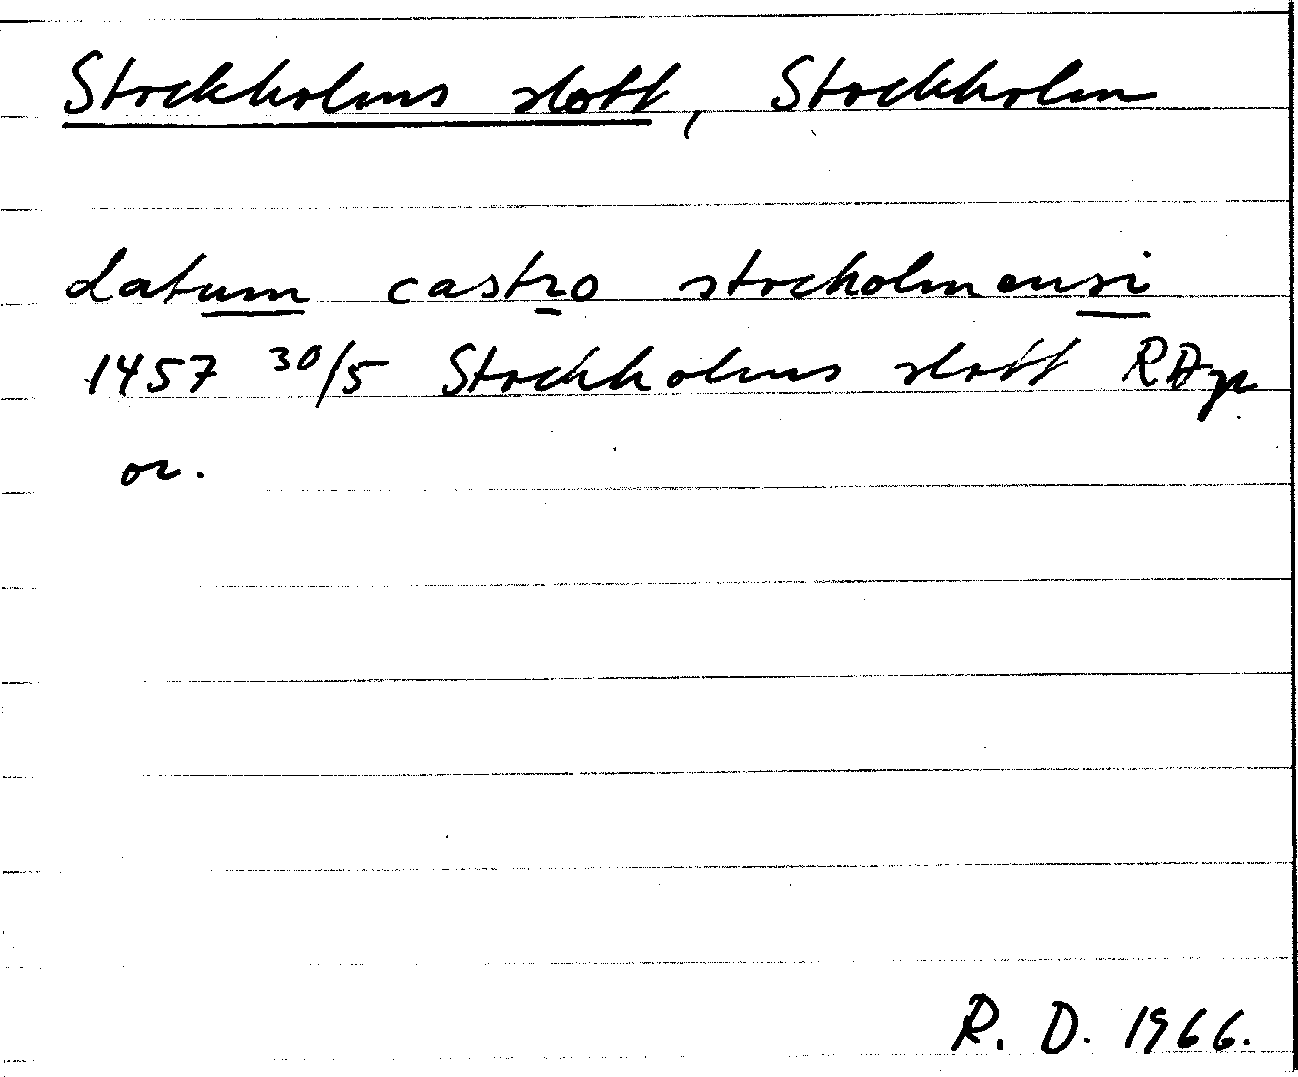 Stockholms slott, Stockholm
datum castro stocholmensi
1457 30/5 Stockholms slott RAp
or.
R. D. 1966.